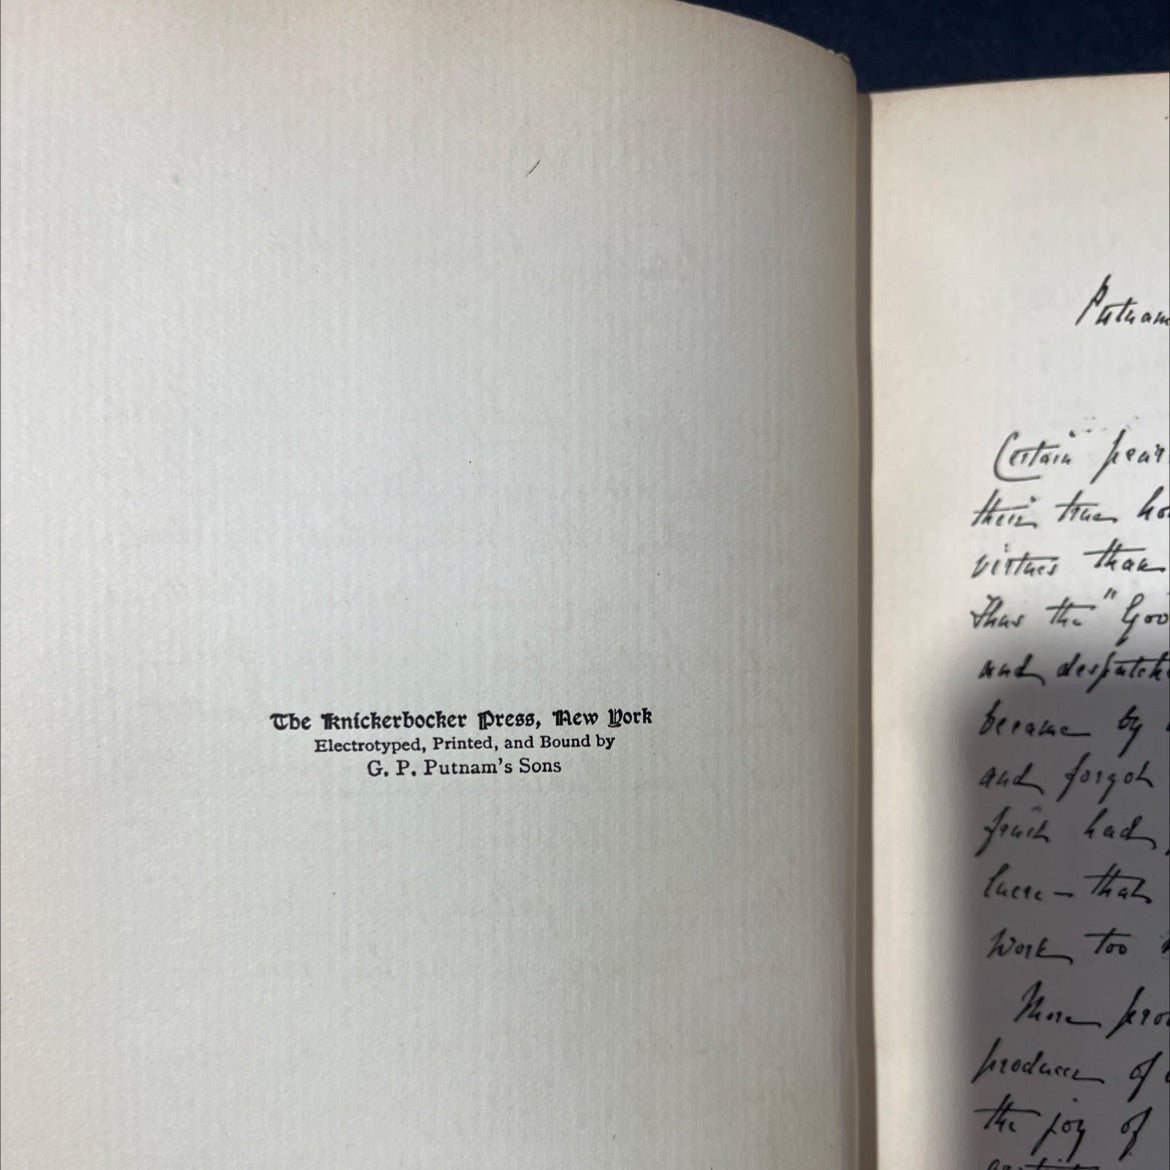 The Knickerbocker Press, New York
Electrotyped, Printed, and Bound by
G. P. Putnam's Sons
Putnam
Certain
their true
virtues than
Thus the "Goo
and despatche
became by
and forgot
fruit had
lucre - that
work too
More pro
producer of
the joy of